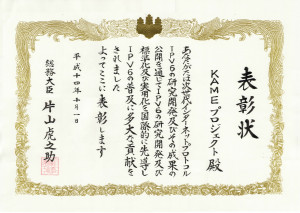 表彰状
KAMEプロジェクト殿
あなたがたは次世代インターネットプロトコル
IPV6の研究開発及びその成果の
公開を通じIPV6の研究開発及び
標準化及び実用化を国際的に先導し
IPV6の普及に多大な貢献を
されました
よってここに表彰します
平成十四年十月一日
総務大臣 片山虎之助